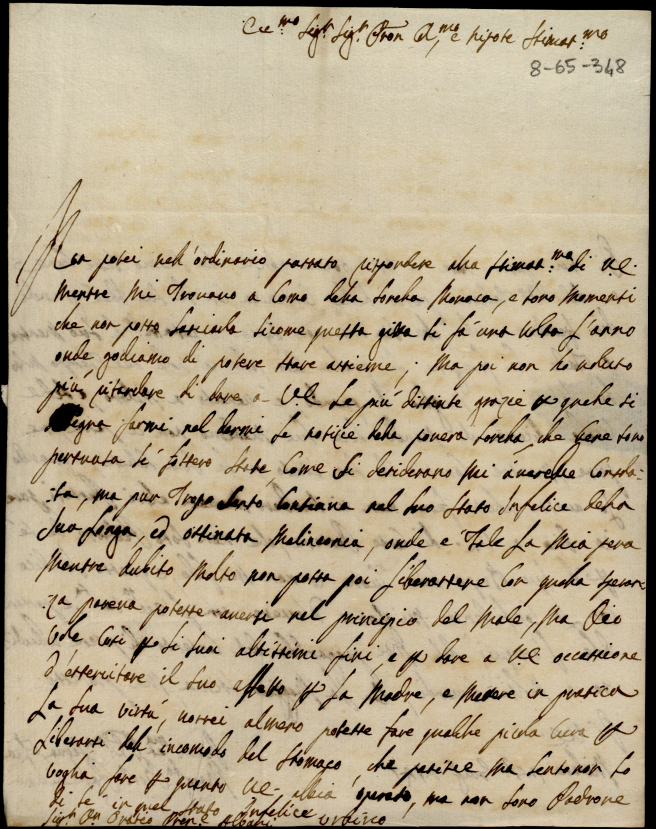 Ecc.mo Sig.r Sig.r Pron C.mo e Nipote Stimat.mo
8-65-348
Non potei nell'ordinario passato rispondere alla stimat.ma di V.E.
mentre mi trovavo a Como dalla sorella Monaca, e sono momenti
che non posso lasciarla sicome questa gitta si fà una volta l'anno
onde godiamo di potere stare assieme; Ma poi non ho voluto
più ritardare di dare a V.E. le più distinte grazie p quelle si
degna farmi nel darmi le notizie della povera sorella, che bene sono
persuasa sé fossero state come si desiderano mi averebbe consola
ta, ma pur tropo sento continua nel suo stato infelice della
sua longa, ed ostinata melinconia, onde e tale la mia pena
mentre dubito molto non possa poi liberarsene con quella speran
za pareva potesse aversi nel principio del male, ma Dio
vole così p li suoi altissimi fini, e p dare a V.E. occassione
d'essercitare il suo affetto p la Madre, e mettere in pratica
la sua virtù, vorrei almeno potesse fare qualche picola cura p
liberarsi dell incomodo del stomaco che patisce ma sento non lo
voglia fare p quanto V.E. abbia operato, ma non sono Padrone
di sé in quel stato infelice
Sig.r Orazio Pren.e Albani Urbino